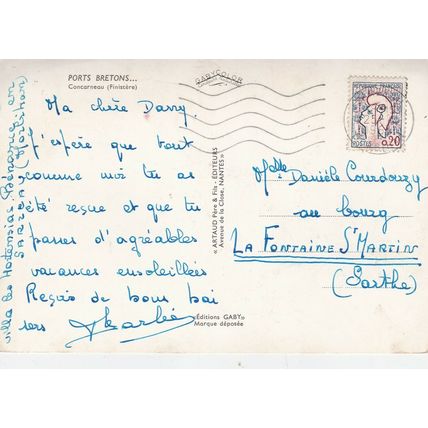 PORTS BRETONS...
Concarneau (Finistère)
GABYCOLOR
Ma chère Dany.
J'espère que tout
comme moi tu as
été reçue et que tu
passes d'agréables
vacances ensoleillées
Reçois de bons bai
sers
villa les Hortensias Bénance en
SARZEAU (Morbihan)
« ARTAUD Père & Fils - ÉDITEURS
Avenue de la Close, NANTES »
«Editions GABY»
Marque déposée
REPUBLIQUE FRANÇAISE
POSTES 0,20
Melle Danièle Courdouzy
au bourg
LA FONTAINE St MARTIN
(Sarthe)